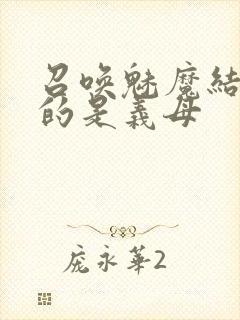 召唤魅魔结
的是義母
庞永華2